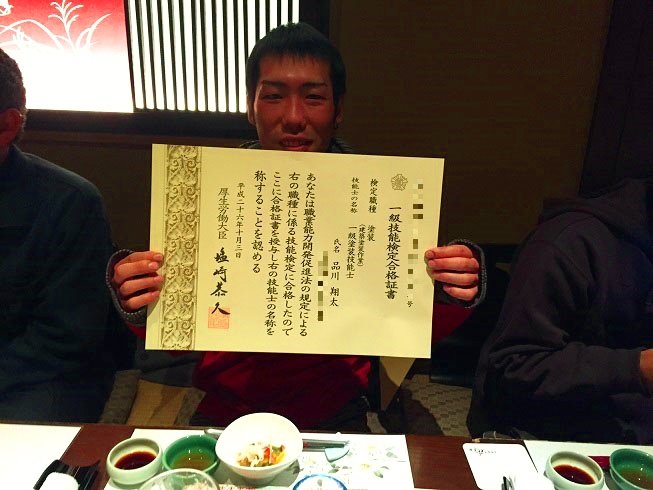 一級技能検定合格証書
号
検定職種 塗装
(建築塗装作業)
技能士の名称 一級塗装技能士
氏名 品川 翔太
あなたは職業能力開発促進法の規定による
右の職種に係る技能検定に合格したので
ここに合格証書を授与し右の技能士の名称を
称することを認める
平成二十六年十月三日
厚生労働大臣 塩崎恭久